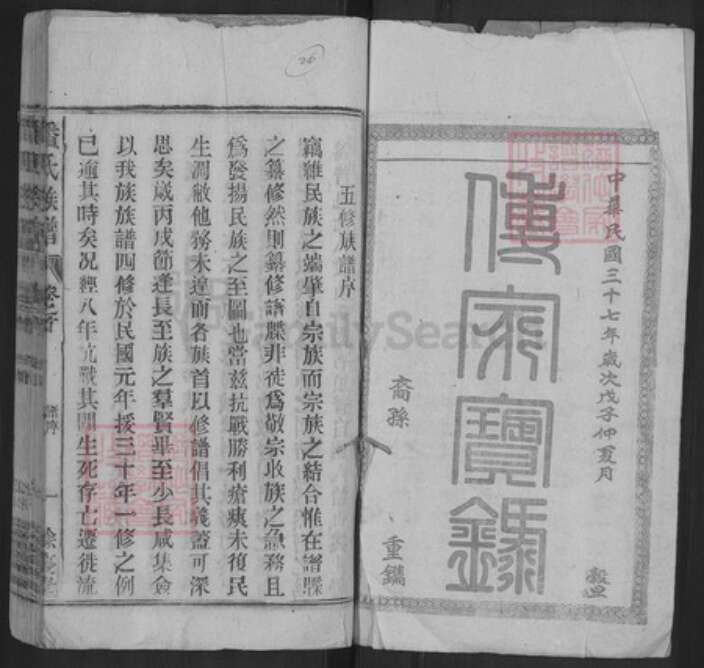 中華民國三十七年歲次戊子仲夏月
穀旦
傳家寶錄
裔孫
重鐫
五修族譜序
竊維民族之端肇自宗族而宗族之結合惟在譜牒
之纂修然則纂修譜牒非徒為敬宗收族之急務且
為發揚民族之至圖也當茲抗戰勝利瘡痍未復民
生凋敝他務未遑而各族首以修譜倡其義蓋可深
思矣歲丙戌節逢長至族之羣賢畢至少長咸集僉
以我族族譜四修於民國元年援三十年一修之例
已逾其時矣况經八年抗戰其間生死存亡遷徙流
氏族譜
卷首
一
26
FamilySearch